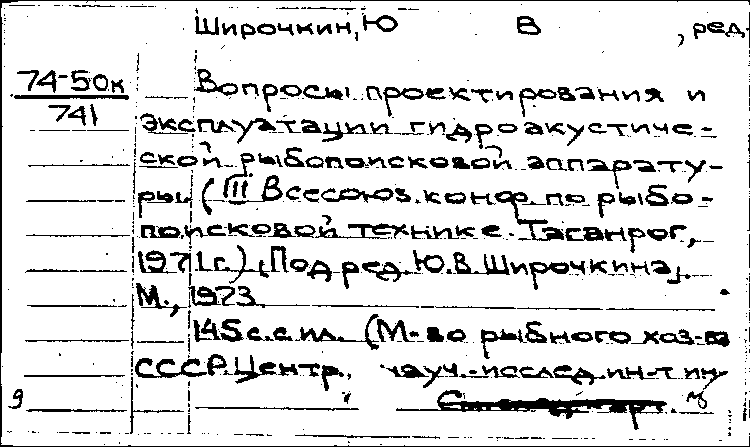 Широчкин, Ю В , ред.
74-50к
741
Вопросы проектирования и
эксплуатации гидроакустиче-
ской рыбопоисковой аппарату-
ры. (III Всесоюз. конф. по рыбо-
поисковой технике. Таганрог,
1971 г.). [Под ред. Ю.В. Широчкина].
М., 1973.
145 с. с ил. (М-во рыбного хоз-ва
СССР. Центр. науч.-исслед. ин-т ин-
9